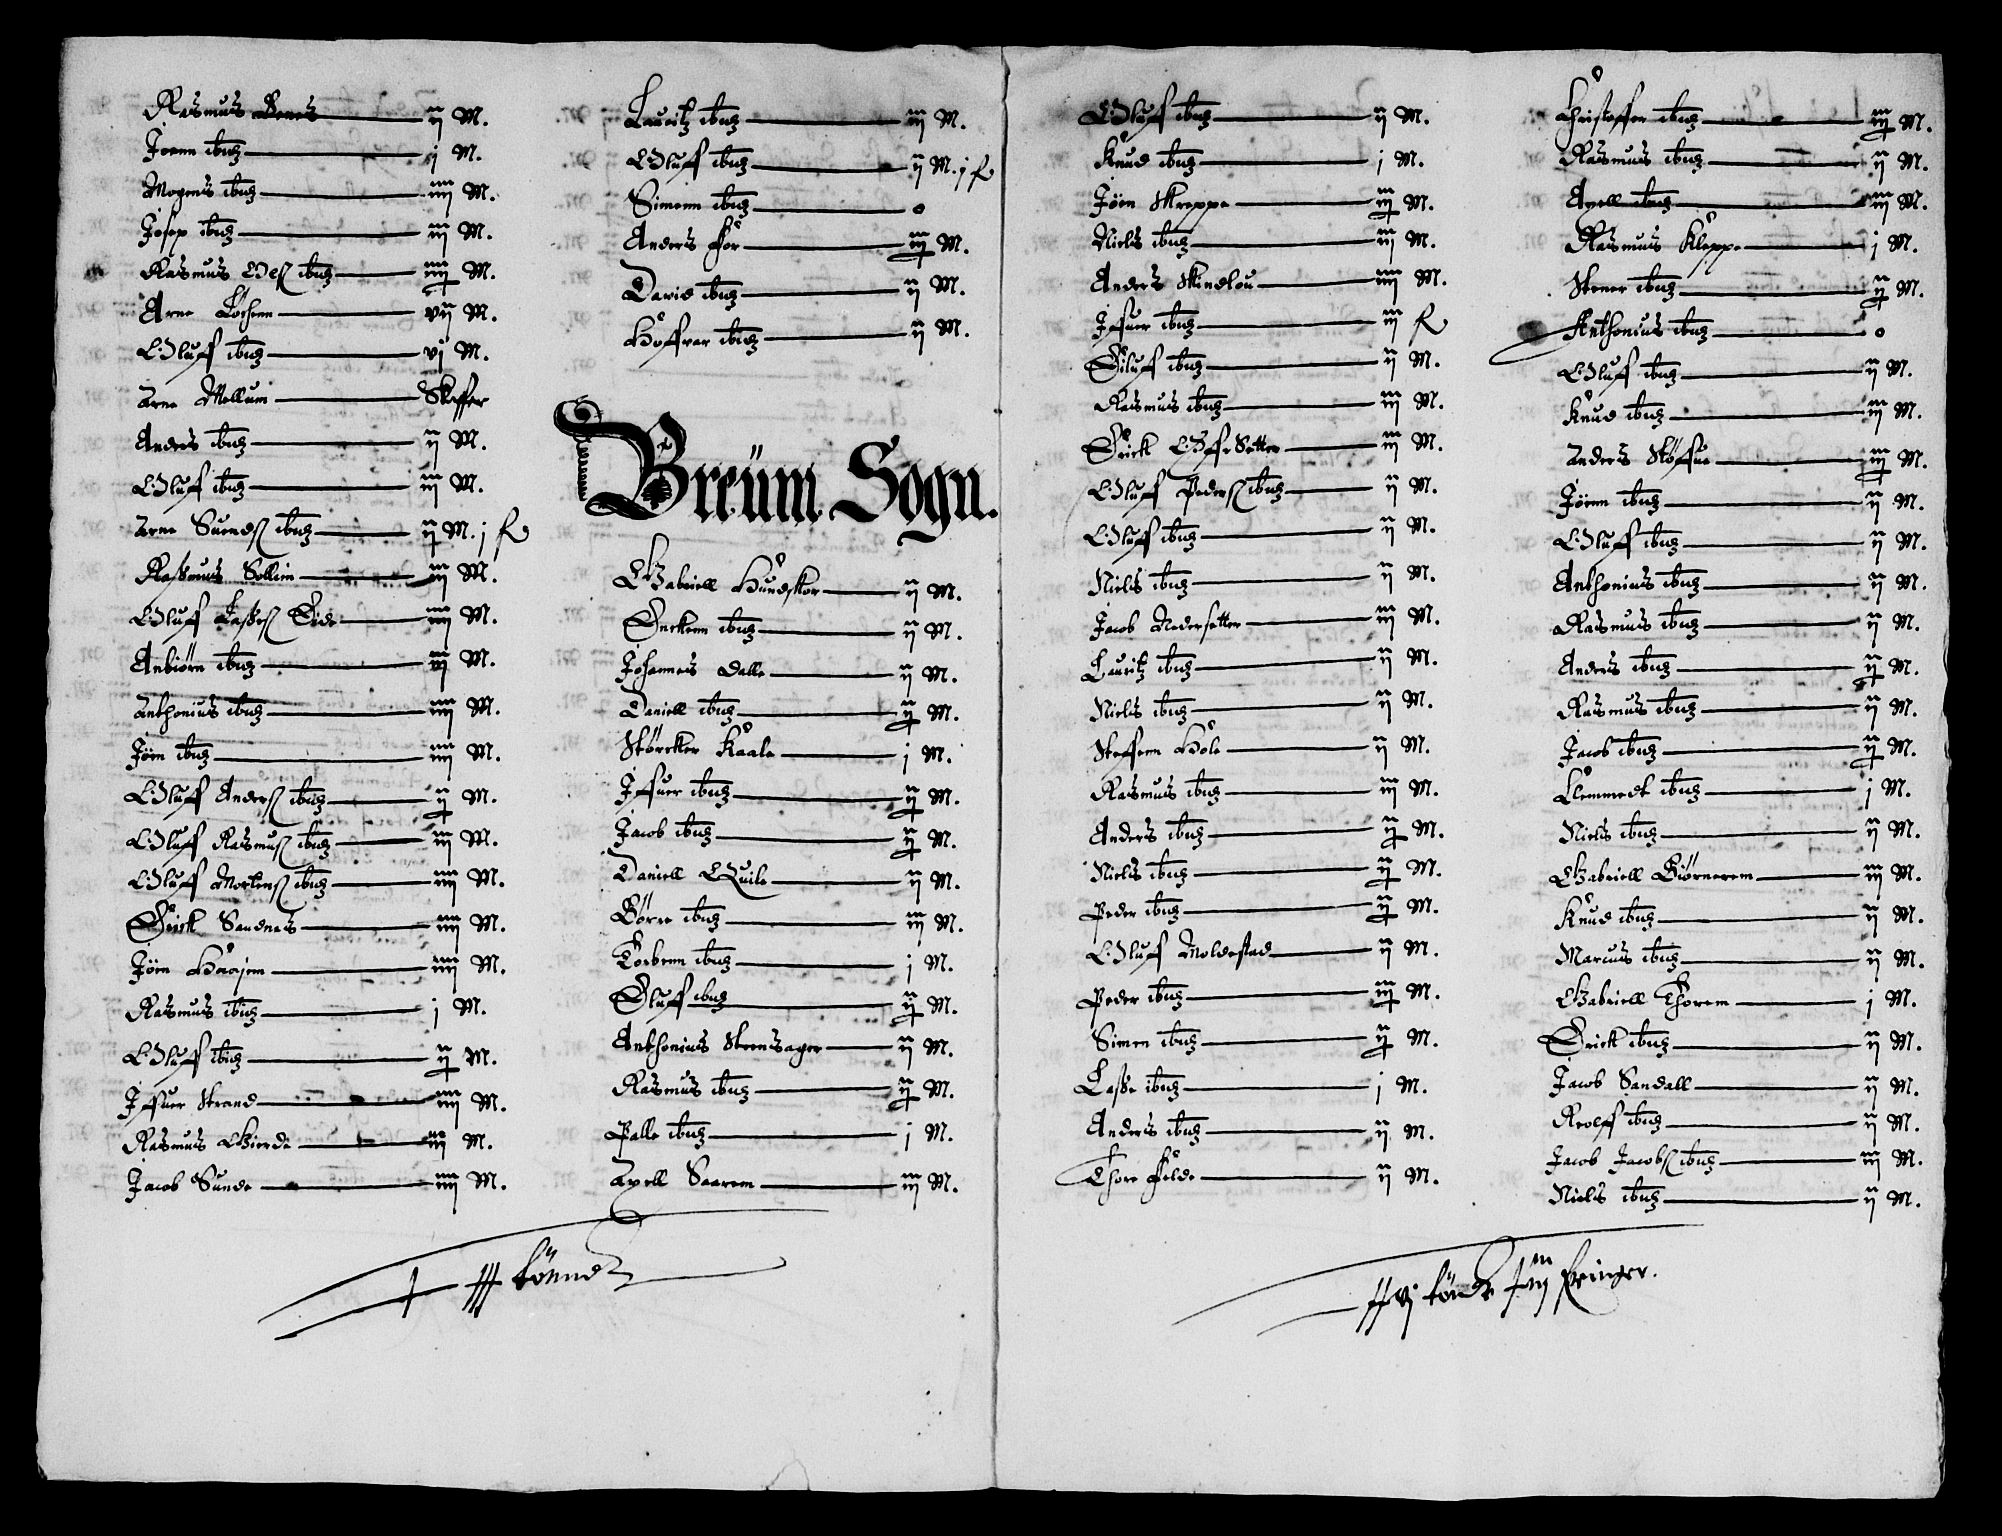 Rasmus Benes ij M.
Joenn ibid: j M.
Mogens ibid: iiij M.
Josep ibid: iij M.
Rasmus Oels: ibid: iiij M.
Arne Løchenn vij M.
Oluff ibid: vj M.
Arne Mellum Skaffer
Anders ibid: ij M.
Oluff ibid: iij M.
Arne Suends: ibid: ij M. j F
Rasmus Sollim iiij M.
Oluff Lasses: Eide iiij M.
Anbiørn ibid: vj M.
Anthonius ibid: iiij M.
Jøen ibid: iiij M.
Oluff Anders: ibid: ij M.
Oluff Rasmus: ibid: iij M.
Oluff Mortens: ibid: iiij M.
Erick Sandnes iiij M.
Jøen iiij M.
Rasmus ibid: j M.
Oluff ibid: ij M.
Iffuer Strand iiij M.
Rasmus Gierde iiij M.
Jacob Sunde iiij M.
Lauritz ibid: iij M.
Oluff ibid: ij M. j F
Simenn ibid: o
Anders For iij M.
Dauid ibid: ij M.
ibid: ij M.
Breüm Sogn.
Gabriell Hundskor ij M.
ibid: ij M.
Johannes Dalle ij M.
Daniell ibid: ij M.
Størcker Kaale j M.
Iffuer ibid: ij M.
Jacob ibid: ij M.
Daniell Quile ij M.
Børre ibid: iij M.
Torbenn ibid: j M.
Oluff ibid: ij M.
Anthonius Steensager ij M.
Rasmus ibid: ij M.
Palle ibid: j M.
Axell Saarem iij M.
tönnde
Oluff ibid: ij M.
Knud ibid: j M.
Jøen Skreppe iij M.
Niels ibid: iij M.
Anders Skindlou iiij M.
Iffuer ibid: iij F
Eiluff ibid: ij M.
Rasmus ibid: iij M.
Erick iij M.
Oluff Peders: ibid: ij M.
Oluff ibid: ij M.
Niels ibid: ij M.
Jacob Nedersetter iij M.
Lauritz ibid: ij M.
Niels ibid: ij M.
Steffenn Hole ij M.
Rasmus ibid: iij M.
Anders ibid: ij M.
Niels ibid: ij M.
Peder ibid: ij M.
Oluff Moldestad ij M.
Peder ibid: iij M.
Simen ibid: ij M.
Lasse ibid: j M.
Anders ibid: ij M.
Thore Felde ij M.
Christoffer ibid: iij M.
Rasmus ibid: ij M.
Axell ibid: iij M.
Rasmus Kleppe j M.
Stener ibid: ij M.
Anthonius ibid: o
Oluff ibid: ij M.
Knud ibid: iij M.
Anders Støffue iij M.
Jøenn ibid: ij M.
Oluff ibid: ij M.
Anthonius ibid: ij M.
Rasmus ibid: ij M.
Anders ibid: ij M.
Rasmus ibid: ij M.
Jacob ibid: ij M.
Clemmedt ibid: j M.
Niels ibid: ij M.
Gabriell Biørnerem iij M.
Knud ibid: ij M.
Marcus ibid: ij M.
Gabriell Thorem j M.
Erick ibid: ij M.
Jacob Sandall ij M.
Reolff ibid: ij M.
Jacob Jacobs: ibid: iij M.
Niels ibid: ij M.
tönde